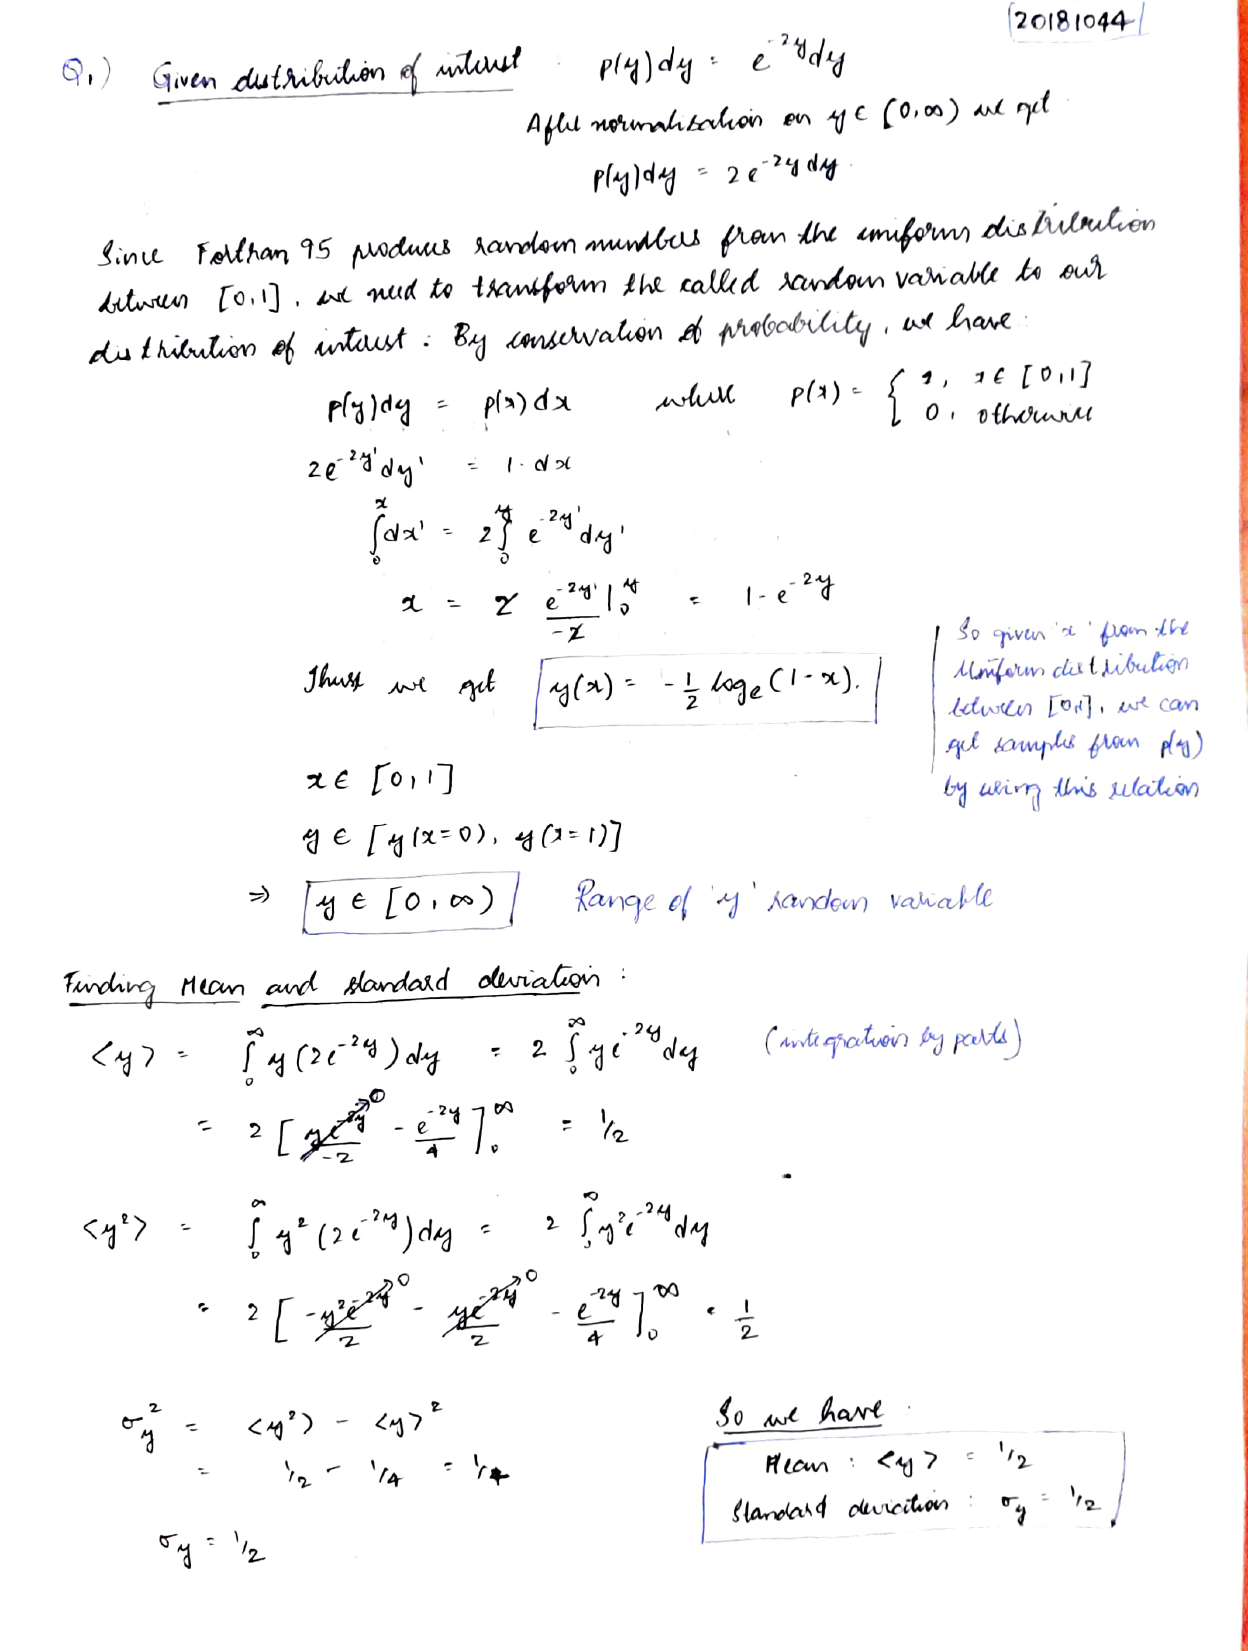 20181044
Q.1) Given distribution of interest : p(y)dy = e^{-2y}dy
After normalisation on y ∈ [0,∞) we get
p(y)dy = 2e^{-2y}dy.
Since Forthan 95 produces random numbers from the uniform distribution
between [0,1], we need to transform the called random variable to our
distribution of interest : By conservation of probability, we have :
p(y)dy = p(x)dx where p(x) = { 1, x ∈ [0,1]
0, otherwise
2e^{-2y'}dy' = 1·dx
∫_0^x dx' = 2∫_0^y e^{-2y'}dy'
x = 2 e^{-2y'}/-2 |_0^y = 1-e^{-2y}
Thus we get y(x) = -1/2 log_e(1-x).
So given 'x' from the
Uniform distribution
between [0,1], we can
get samples from p(y)
by using this relation
x ∈ [0,1]
y ∈ [y(x=0), y(x=1)]
⇒ y ∈ [0,∞) Range of 'y' random variable
Finding Mean and standard deviation :
<y> = ∫_0^∞ y(2e^{-2y})dy = 2∫_0^∞ ye^{-2y}dy (integration by parts)
= 2[ye^{-2y}/-2 →0 - e^{-2y}/4]_0^∞ = 1/2
<y²> = ∫_0^∞ y²(2e^{-2y})dy = 2∫_0^∞ y²e^{-2y}dy
= 2[-y²e^{-2y}/2 →0 - ye^{-2y}/2 →0 - e^{-2y}/4]_0^∞ = 1/2
σ_y² = <y²> - <y>²
= 1/2 - 1/4 = 1/4
σ_y = 1/2
So we have :
Mean : <y> = 1/2
Standard deviation : σ_y = 1/2